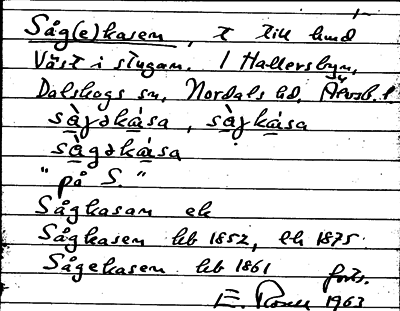 Såg(e)kasen, t till lund
Väst i stugan. I Hallersbyn,
Dalskogs sn, Nordals hd, Älvsb. l.
sàjəkása, sàjkása
sàgəkása
"på S."
Sågkasan ek
Sågkasen hb 1852, lh 1875
Sågekasen hb 1861 forts.
E. Rosell 1963